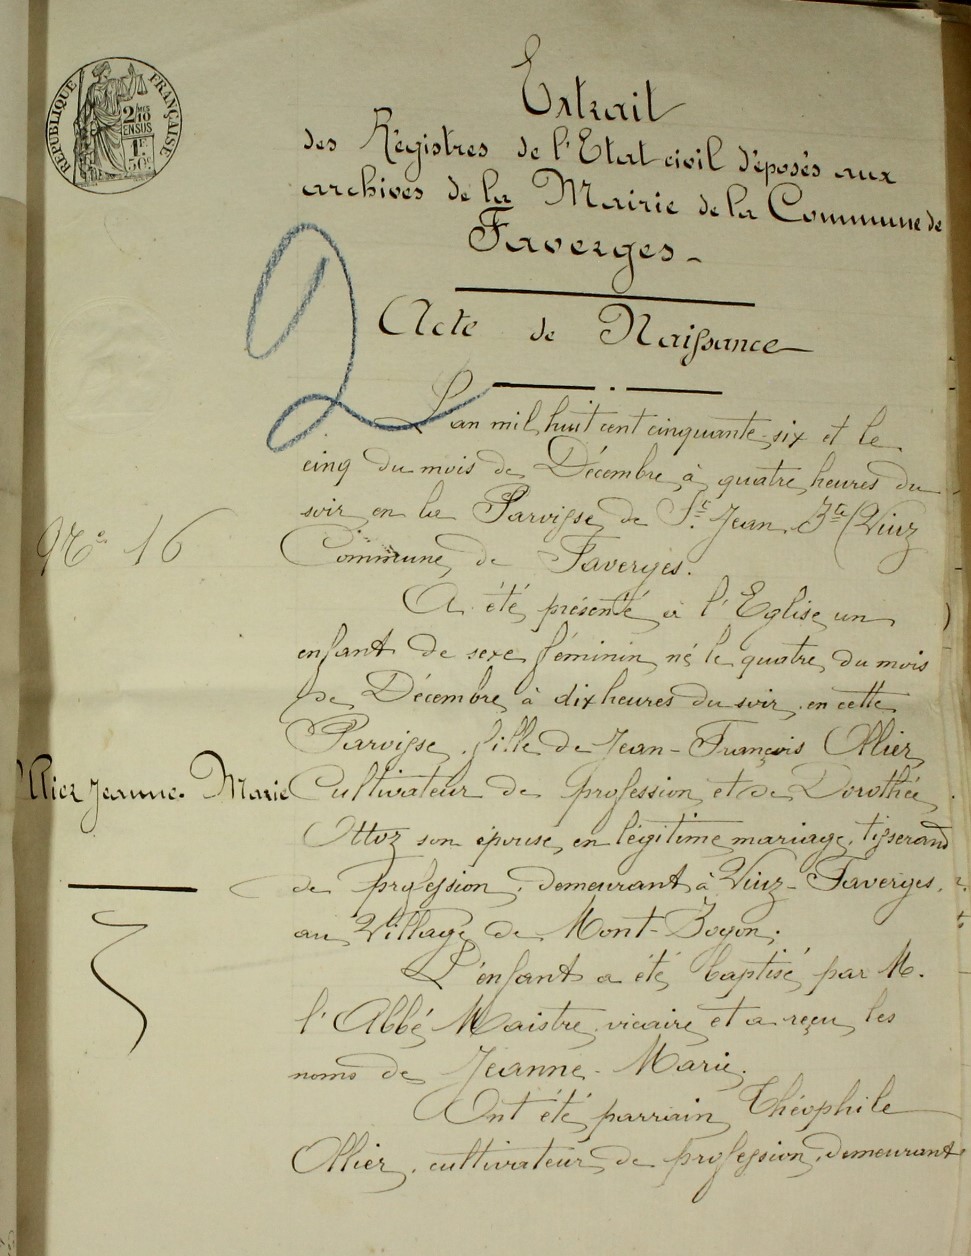 RÉPUBLIQUE FRANÇAISE
2/10
EN SUS
1F
50c
Extrait
des Régistres de l'Etat civil déposés aux
archives de la Mairie de la Commune de
Faverges -
2
Acte de Naissance
L'an mil huit cent cinquante-six et le
cinq du mois de Décembre à quatre heures du
soir en la Paroisse de St. Jean Bte (Viuz
Commune de Faverges.
No 16
A été présenté à l'Eglise un
enfant de sexe féminin né le quatre du mois
de Décembre à dix heures du soir en cette
Paroisse, fille de Jean-François Ollier
Ollier Jeanne-Marie
Cultivateur de profession et de Dorothée
Ottoz son épouse en légitime mariage, tisserand
de profession, demeurant à Viuz-Faverges,
au Village de Mont-Bogon;
L'enfant a été baptisé par M.
l'Abbé Maistre vicaire et a reçu les
noms de Jeanne-Marie.
Ont été parrain Théophile
Ollier, cultivateur de profession, demeurant